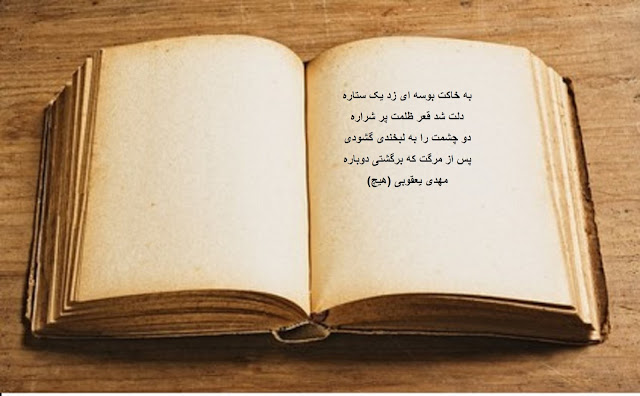 به خاکت بوسه ای زد یک ستاره
دلت شد قعر ظلمت پر شراره
دو چشمت را به لبخندی گشودی
پس از مرگت که برگشتی دوباره
مهدی یعقوبی (هیچ)